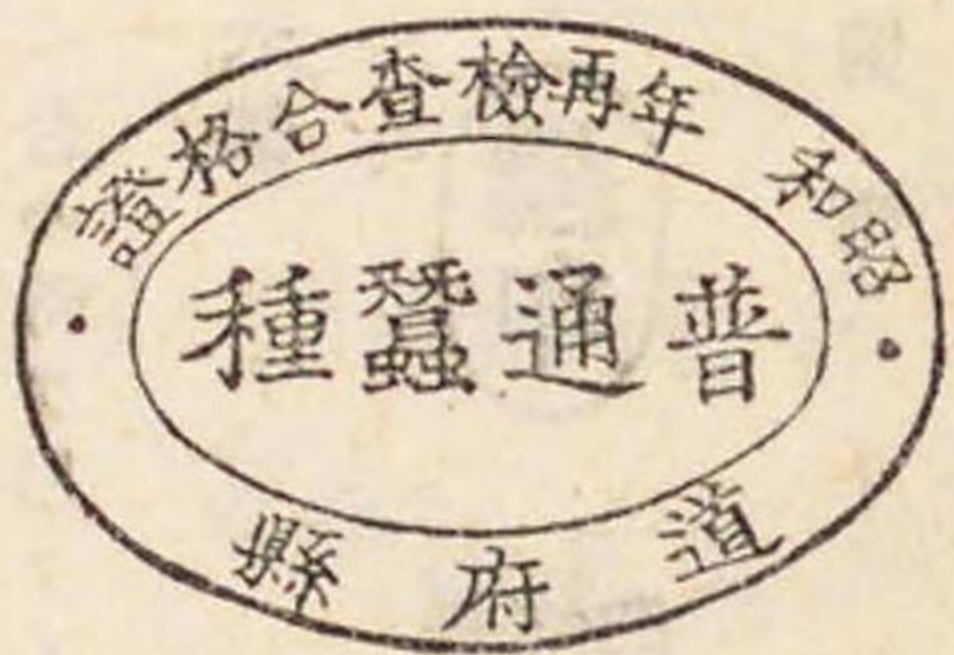 昭和　年再檢查合格證
普通蠶種
道府縣